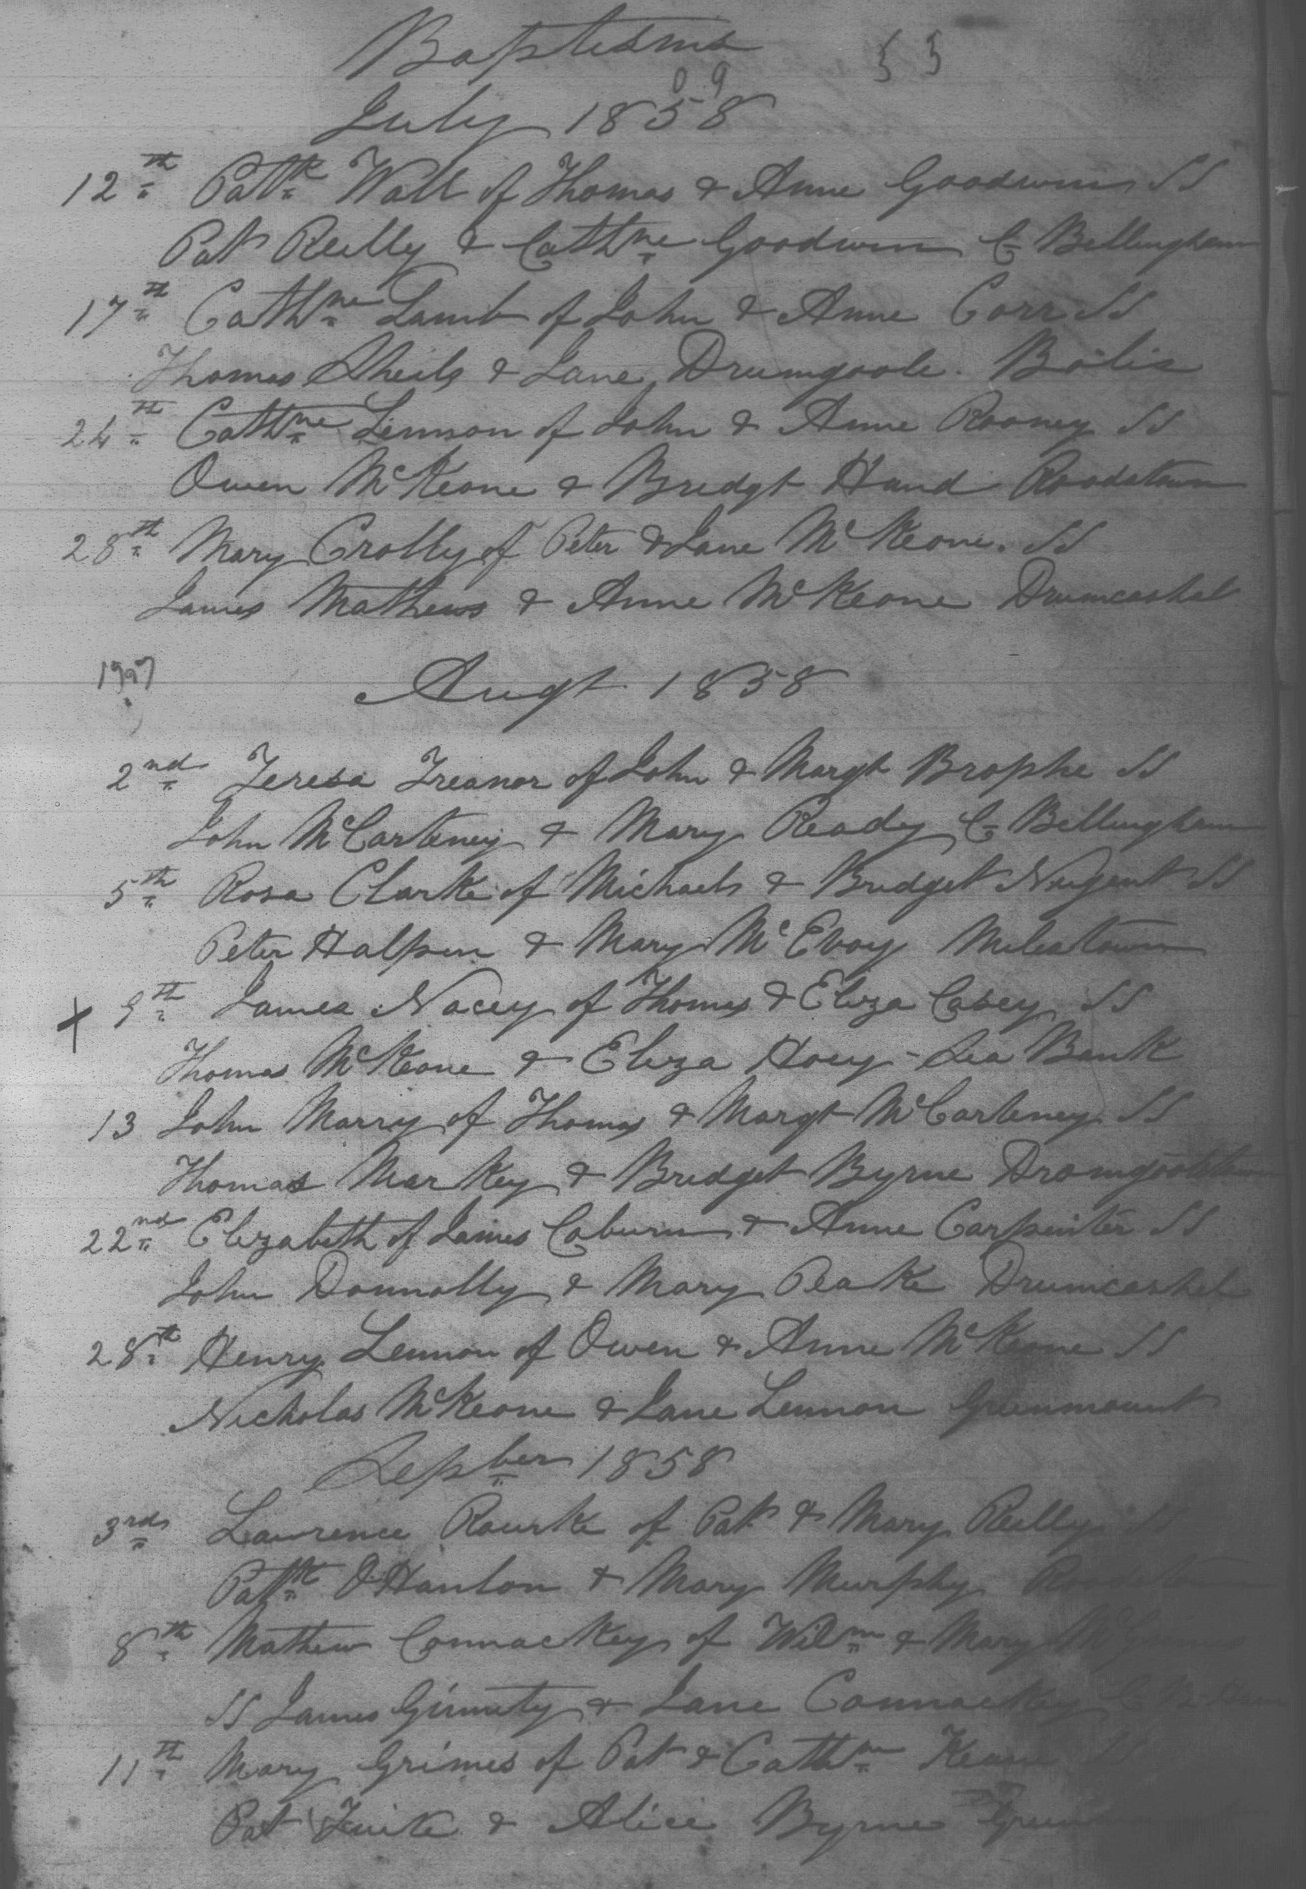 Baptisms 55
July 1858
12th Pattk Wall of Thomas & Anne Goodwin SS
Pat Reilly & Cathne Goodwin C Bellingham
17th Cathne Lamb of John & Anne Corr SS
Thomas Sheils & Jane Drumgoole. Bolis
24th Cathne Linnon of John & Anne Rooney SS
Owen McKeone & Bridgt Hand Roodstown
28th Mary Crolly of Peter & Jane McKeone. SS
James Mathews & Anne McKeone Drumcashel
Augt 1858
2nd Teresa Treanor of John & Margt Brophe SS
John McCarteney & Mary Ready C Bellingham
5th Rosa Clarke of Michael & Bridget Nugent SS
Peter Halpin & Mary McEvoy Milestown
x 9th James Nacey of Thomas & Eliza Casey SS
Thomas McKeone & Eliza Hoey - Sea Bank
13 John Marry of Thomas & Margt McCarteney SS
Thomas Markey & Bridget Byrne
22nd Elizabeth of James Coburn & Anne Carpenter SS
John Donnolly & Mary Peake Drumcashel
28th Henry Lennon of Owen & Anne McKeone SS
Nicholas McKeone & Jane Lennon Greenmount
Sepber 1858
3rd Lawrence Rourke of Pat & Mary Reilly SS
Pattk O'Hanlon & Mary Murphy Roodstown
8th Mathew Connackey of Wilm & Mary
SS James & Jane Connackey
11th Mary Grimes of Pat & Cathne
Pat & Alice Byrne